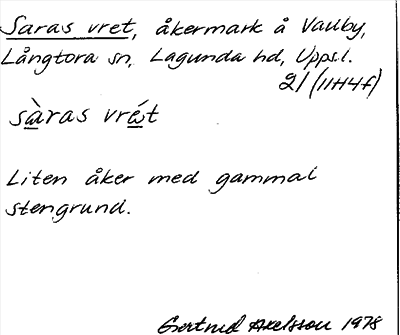 Saras vret, åkermark å Vallby,
Långtora sn, Lagunda hd, Uppsl.
21 (11H4f)
sàras vrét
Liten åker med gammal
stengrund.
Gertrud Axelsson 1978